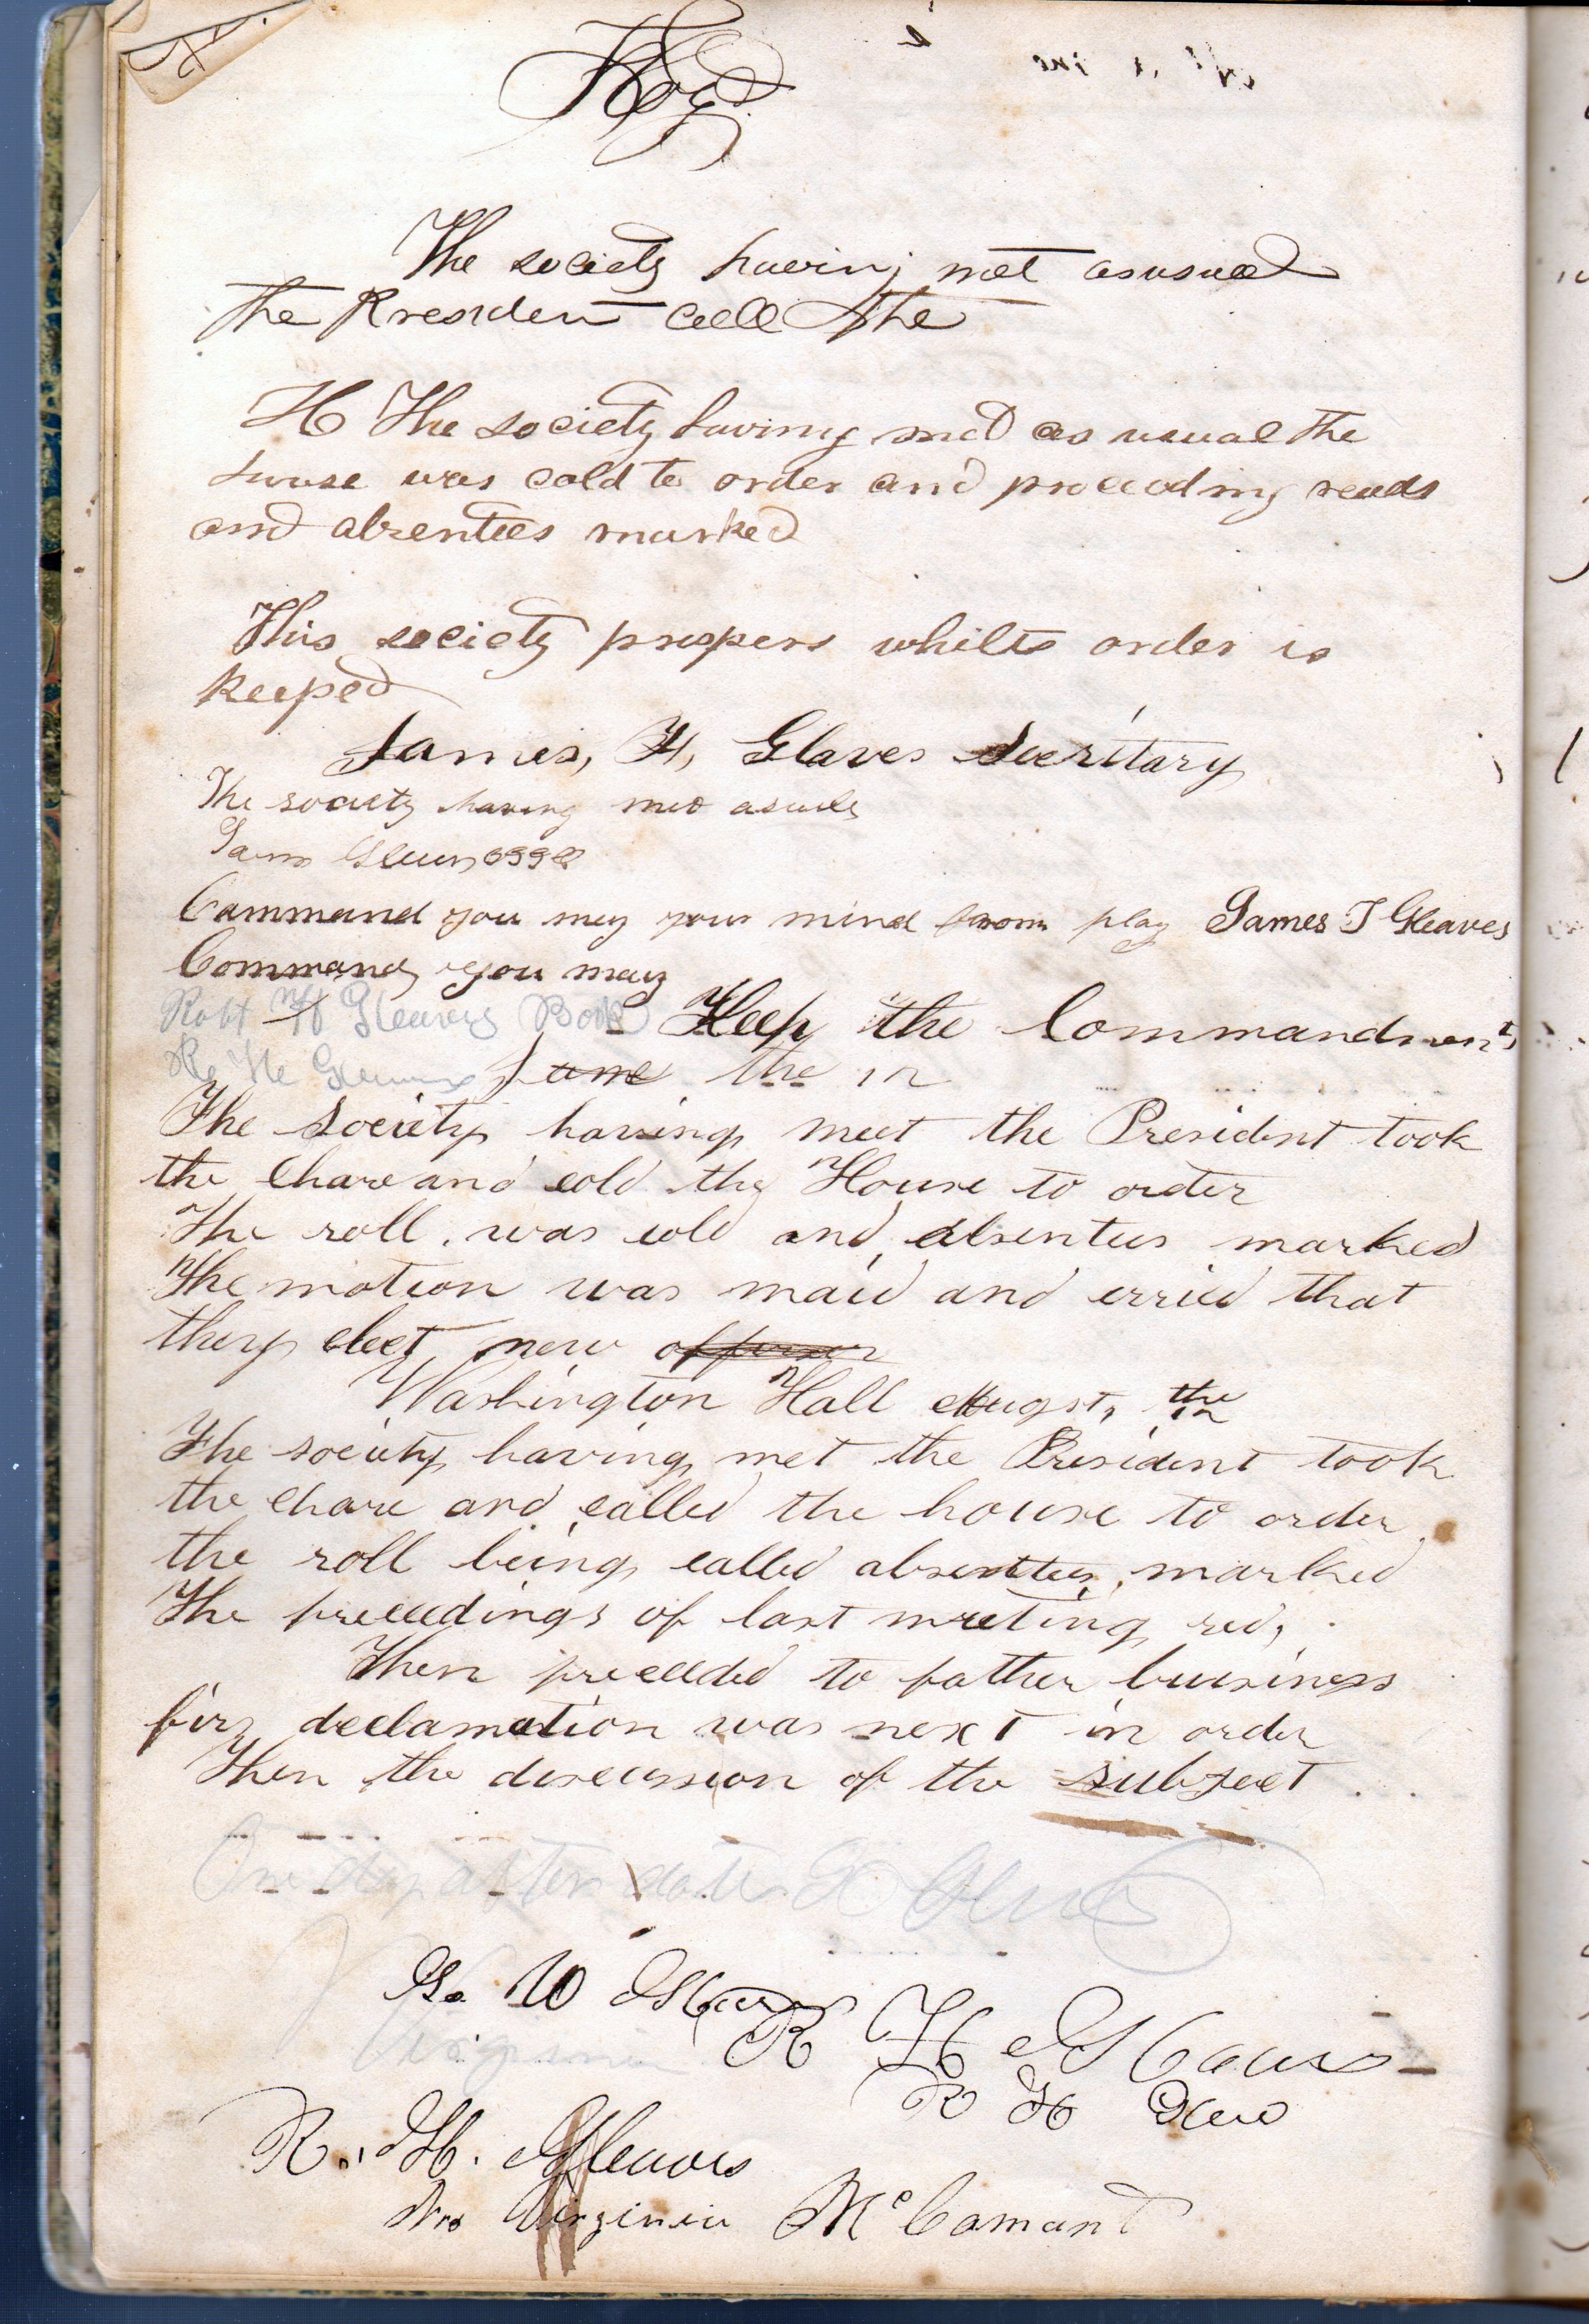 The society having met asusual
the President call the
H The society having met as usual the
house was cald to order and proceeding reads
and absentees marked
This society prospers whilts order is
keeped
James, H, Glaves Secritary
The society having met
Command you mey your mind from play James T Gleaves
Command you may
Robt H Gleaves Book Keep the Commandment
R H June the in
The Society having meet the President took
the Chare and cold the House to order
The roll was cold and absentees marked
The motion was maid and crried that
they elect new officer
Washington Hall Augst, the in
The society having met the President took
the chare and called the house to order
the roll being called absentees marked
The preceedings of last meeting red,
Then preceeded to father buisiness
firs declamation was next in order
Then the discussion of the subject
One day after date
G. W
R H Gleaves
R H Glea
R. H. Gleaves
Virginia McCamant